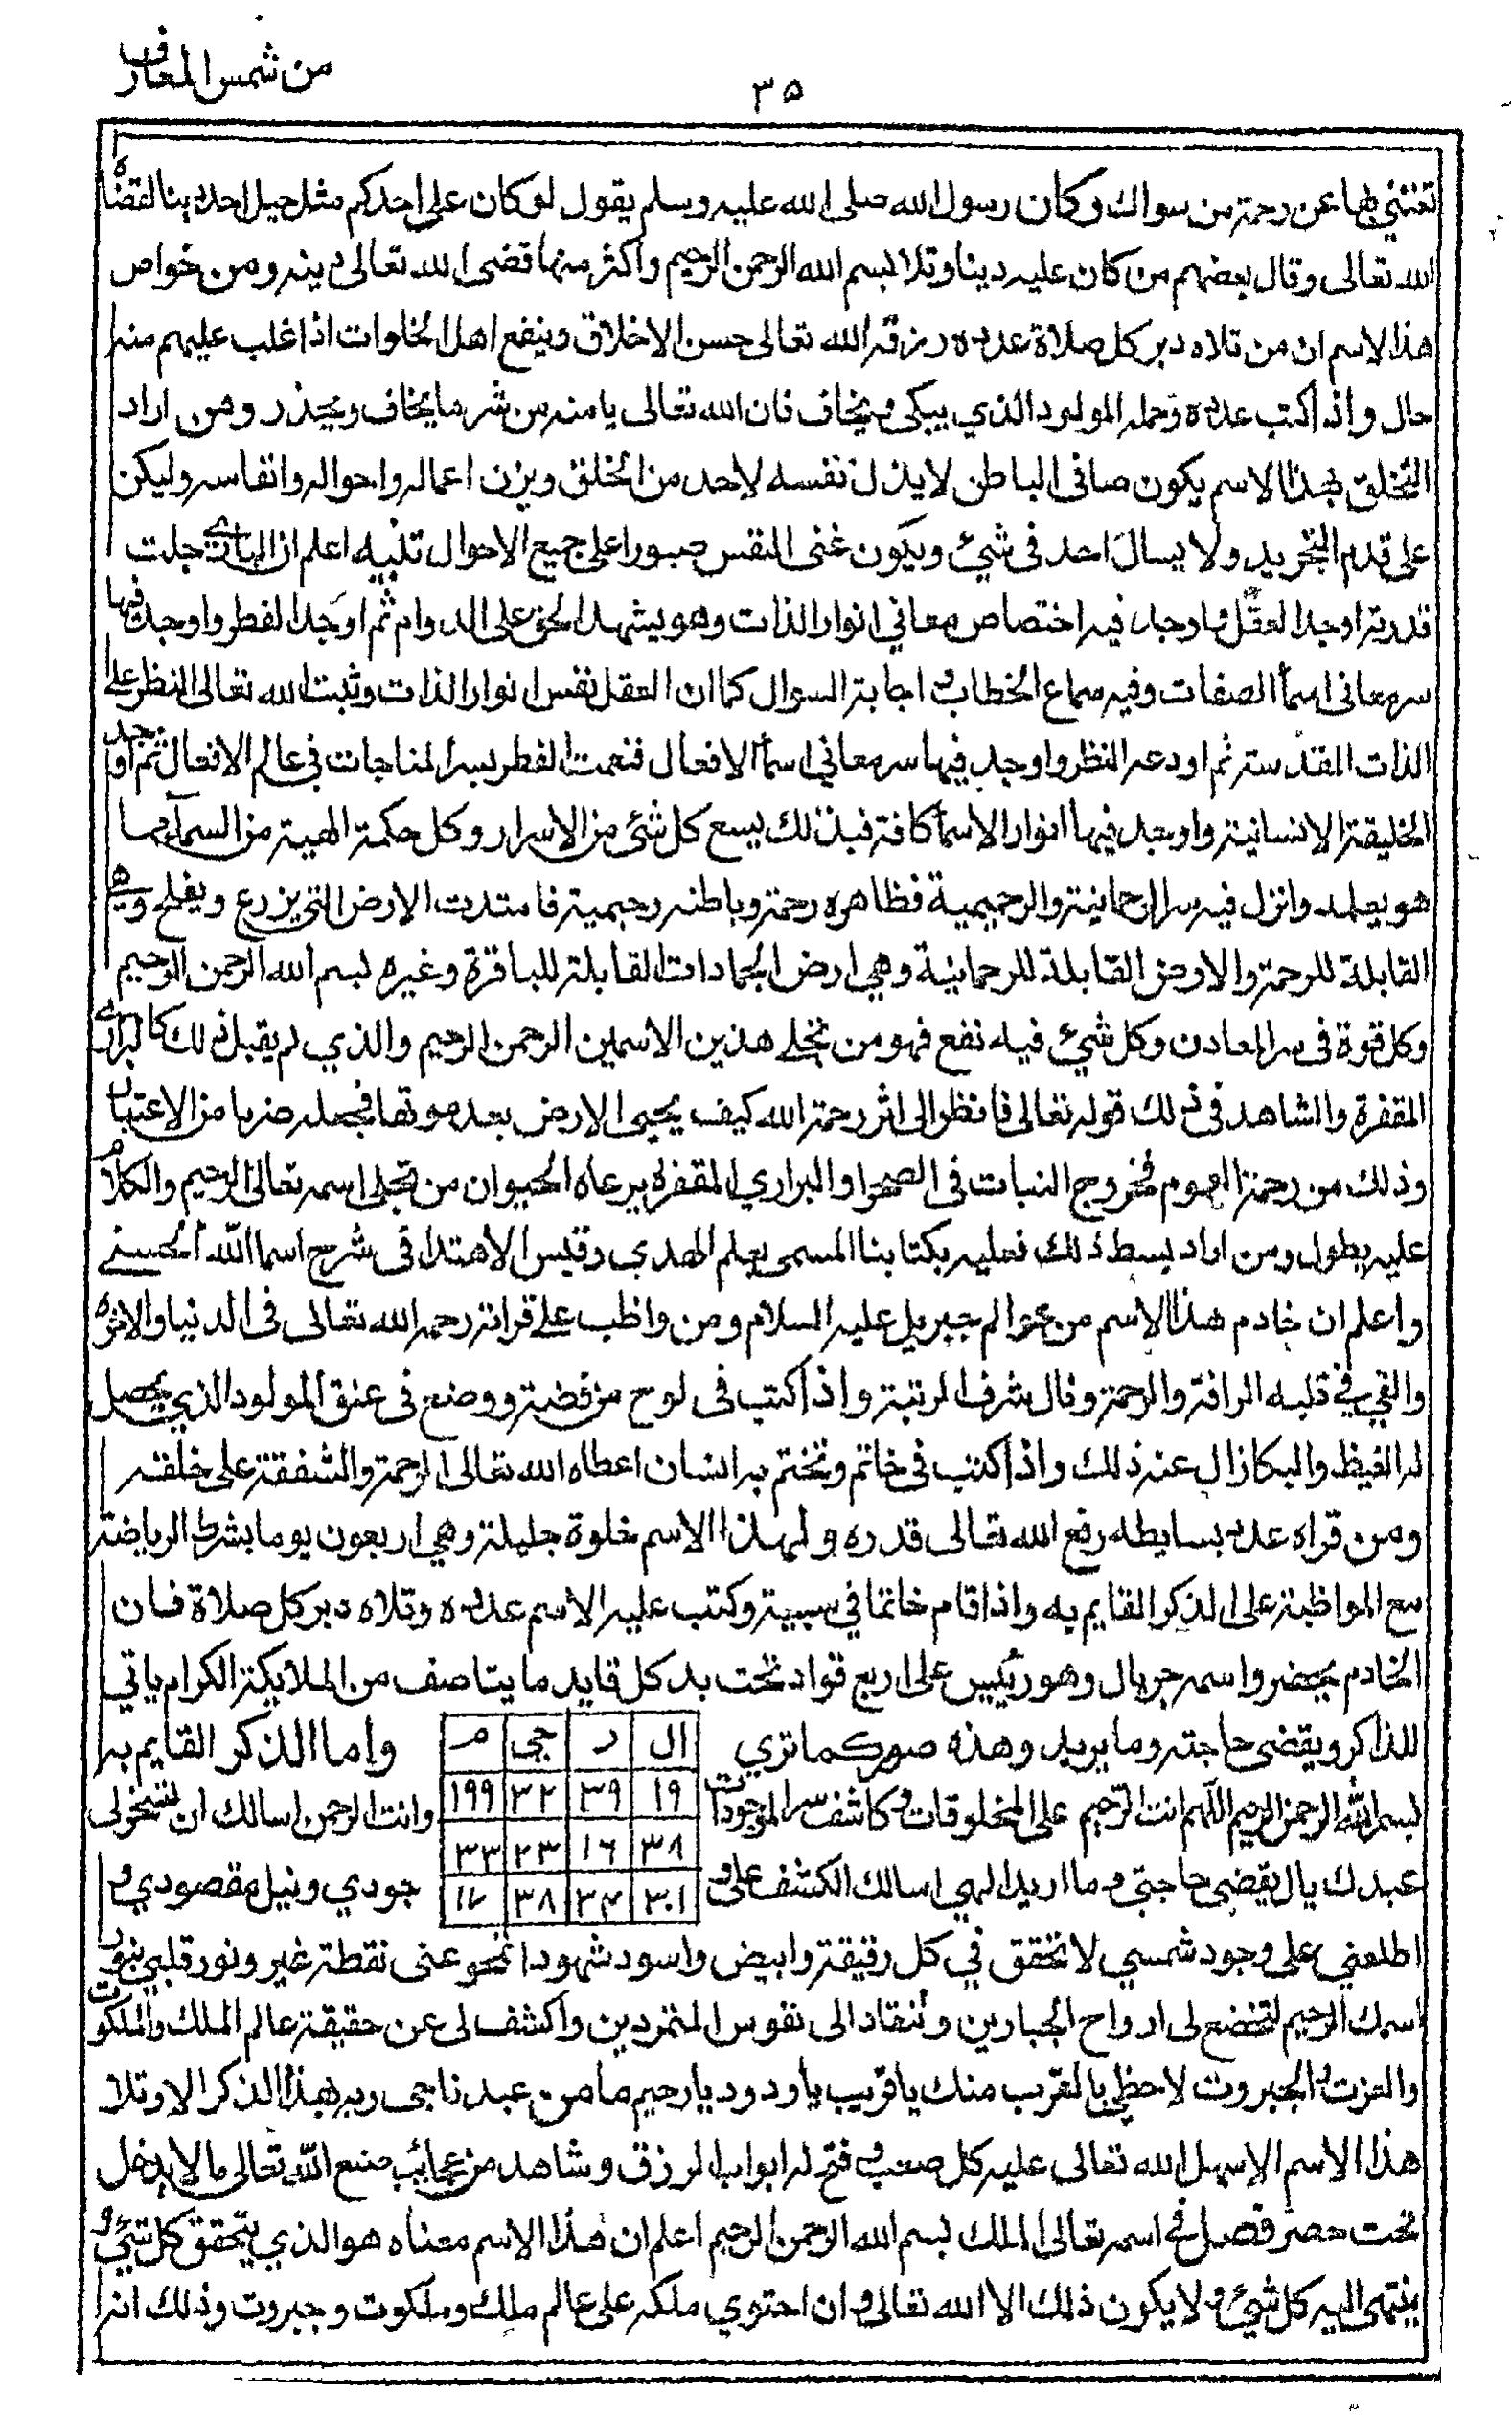 من شمس المعارف
٣٥
تغنني بها عن رحمة من سواك وكان رسول الله صلى الله عليه وسلم يقول لو كان على احدكم مثل جبل احد دينا لقضاه
الله تعالى وقال بعضهم من كان عليه دينا وتلا بسم الله الرحمن الرحيم واكثر منها قضى الله تعالى دينه ومن خواص
هذا الاسم ان من تلاه دبر كل صلاة عدده رزقه الله تعالى حسن الاخلاق وينفع اهل الخلوات اذا غلب عليهم منه
حال واذا كتب عدده وحمله المولود الذي يبكى ويخاف فان الله تعالى يامنه من شر ما يخاف ويحذر ومن اراد
التخلق بهذا الاسم يكون صافى الباطن لا يذل نفسه لاحد من الخلق ويزن اعماله واحواله وانفاسه وليكن
على قدم التجريد ولا يسال احد فى شيئ ويكون غنى النفس صبورا على جميع الاحوال تنبيه اعلم ان البارى جلت
قدرته اوجد العقل واوجد فيه اختصاص معاني انوار الذات وهو يشهد الحق على الدوام ثم اوجد الفطر واوجد فيها
سر معانى اسما الصفات وفيه سماع الخطاب و اجابة السوال كما ان العقل نفس انوار الذات وثبت الله تعالى النظر على
الذات المقدسة ثم اودعه النظر واوجد فيها سر معاني اسما الافعال فنعمت الفطر بسر المناجات فى عالم الافعال ثم اوجد
الخليقة الانسانية واوجد فيها انوار الاسما كافة فبذلك يسع كل شئ من الاسرار وكل حكمة الهية من السمآء مما
هو بصلده وانزل فيه سر الرحمانية والرحيمية فظاهره رحمة وباطنه رحيمية فامتدت الارض التى يزرع ويفلح وهى
القابلة للرحمة والارض القابلة للرحمانية وهي ارض الجمادات القابلة للباقرة وغيره بسم الله الرحمن الرحيم
وكل قوة فى سر المعادن وكل شيئ فيه نفع فهو من تجلى هذين الاسمين الرحمن الرحيم والذي لم يقبل ذلك كالبرارى
المقفرة والشاهد فى ذلك قوله تعالى فانظر الى اثر رحمة الله كيف يحيى الارض بعد موتها فجعله ضربا من الاعتبار
وذلك من رحمة العموم فخروج النبات فى الصحرا والبراري المقفرة يرعاه الحيوان من تجلى اسمه تعالى الرحيم والكلام
عليه يطول ومن اراد بسط ذلك فعليه بكتابنا المسمى بعلم الهدى وقبس الاهتدا فى شرح اسما الله الحسنى
واعلم ان خادم هذا الاسم من عوالم جبريل عليه السلام ومن واظب على قراته رحمه الله تعالى فى الدنيا والاخره
والقي في قلبه الرافة والرحمة ونال شرف المرتبة واذا كتب فى لوح من فضة ووضع فى عنق المولود الذي يحصل
له الغيظ والبكا زال عنه ذلك واذا كتب فى خاتم وتختم به انسان اعطاه الله تعالى الرحمة والشفقة على خلقه
ومن قراه عدد بسايطه رفع الله تعالى قدره ولهذا الاسم خلوة جليلة وهي اربعون يوما بشرط الرياضة
مع المواظبة على الذكر القايم به واذا قام خاتما في سبية وكتب عليه الاسم عدده وتلاه دبر كل صلاة فان
الخادم يحضر واسمه جريال وهو رئيس على اربع قواد تحت يد كل قايد مايتا صف من الملايكة الكرام ياتي
للذاكر ويقضى حاجته وما يريد وهذه صورته كما ترى
ال ر حي م
١٩ ٣٩ ٣٢ ١٩٩
٣٨ ١٦ ٢٣ ٣٣
٣٠١ ٣٤ ٣٨ ١٧
واما الذكر القايم به
بسم الله الرحمن الرحيم اللهم انت الرحيم على المخلوقات وكاشف سر الموجودات وانت الرحمن اسالك ان تسخر لى
عبدك يال يقضى حاجتي وما اريد الهي اسالك الكشف على وجودي ونيل مقصودي و
اطلعني على وجود شمسي لا تحقق في كل رقيقة وابيض واسود شهودا تمحو عنى نقطة غير ونور قلبي بنور
اسمك الرحيم لتخضع لى ارواح الجبارين وتنقاد الى نفوس المتمردين واكشف لى عن حقيقة عالم الملك والملكوت
والعزت والجبروت لاحظى بالقرب منك يا قريب يا ودود يا رحيم ما من عبد ناجى ربه بهذا الذكر الا وتلا
هذا الاسم الا سهل الله تعالى عليه كل صعب و فتح له ابواب الرزق وشاهد من عجائب صنع الله تعالى مالا يدخل
تحت حصر فصل في اسمه تعالى الملك بسم الله الرحمن الرحيم اعلم ان هذا الاسم معناه هو الذي يتحقق كل شئ و
ينتهى اليه كل شيئ ولا يكون ذلك الا الله تعالى وان احتوي ملكه على عالم ملك وملكوت وجبروت وذلك انه